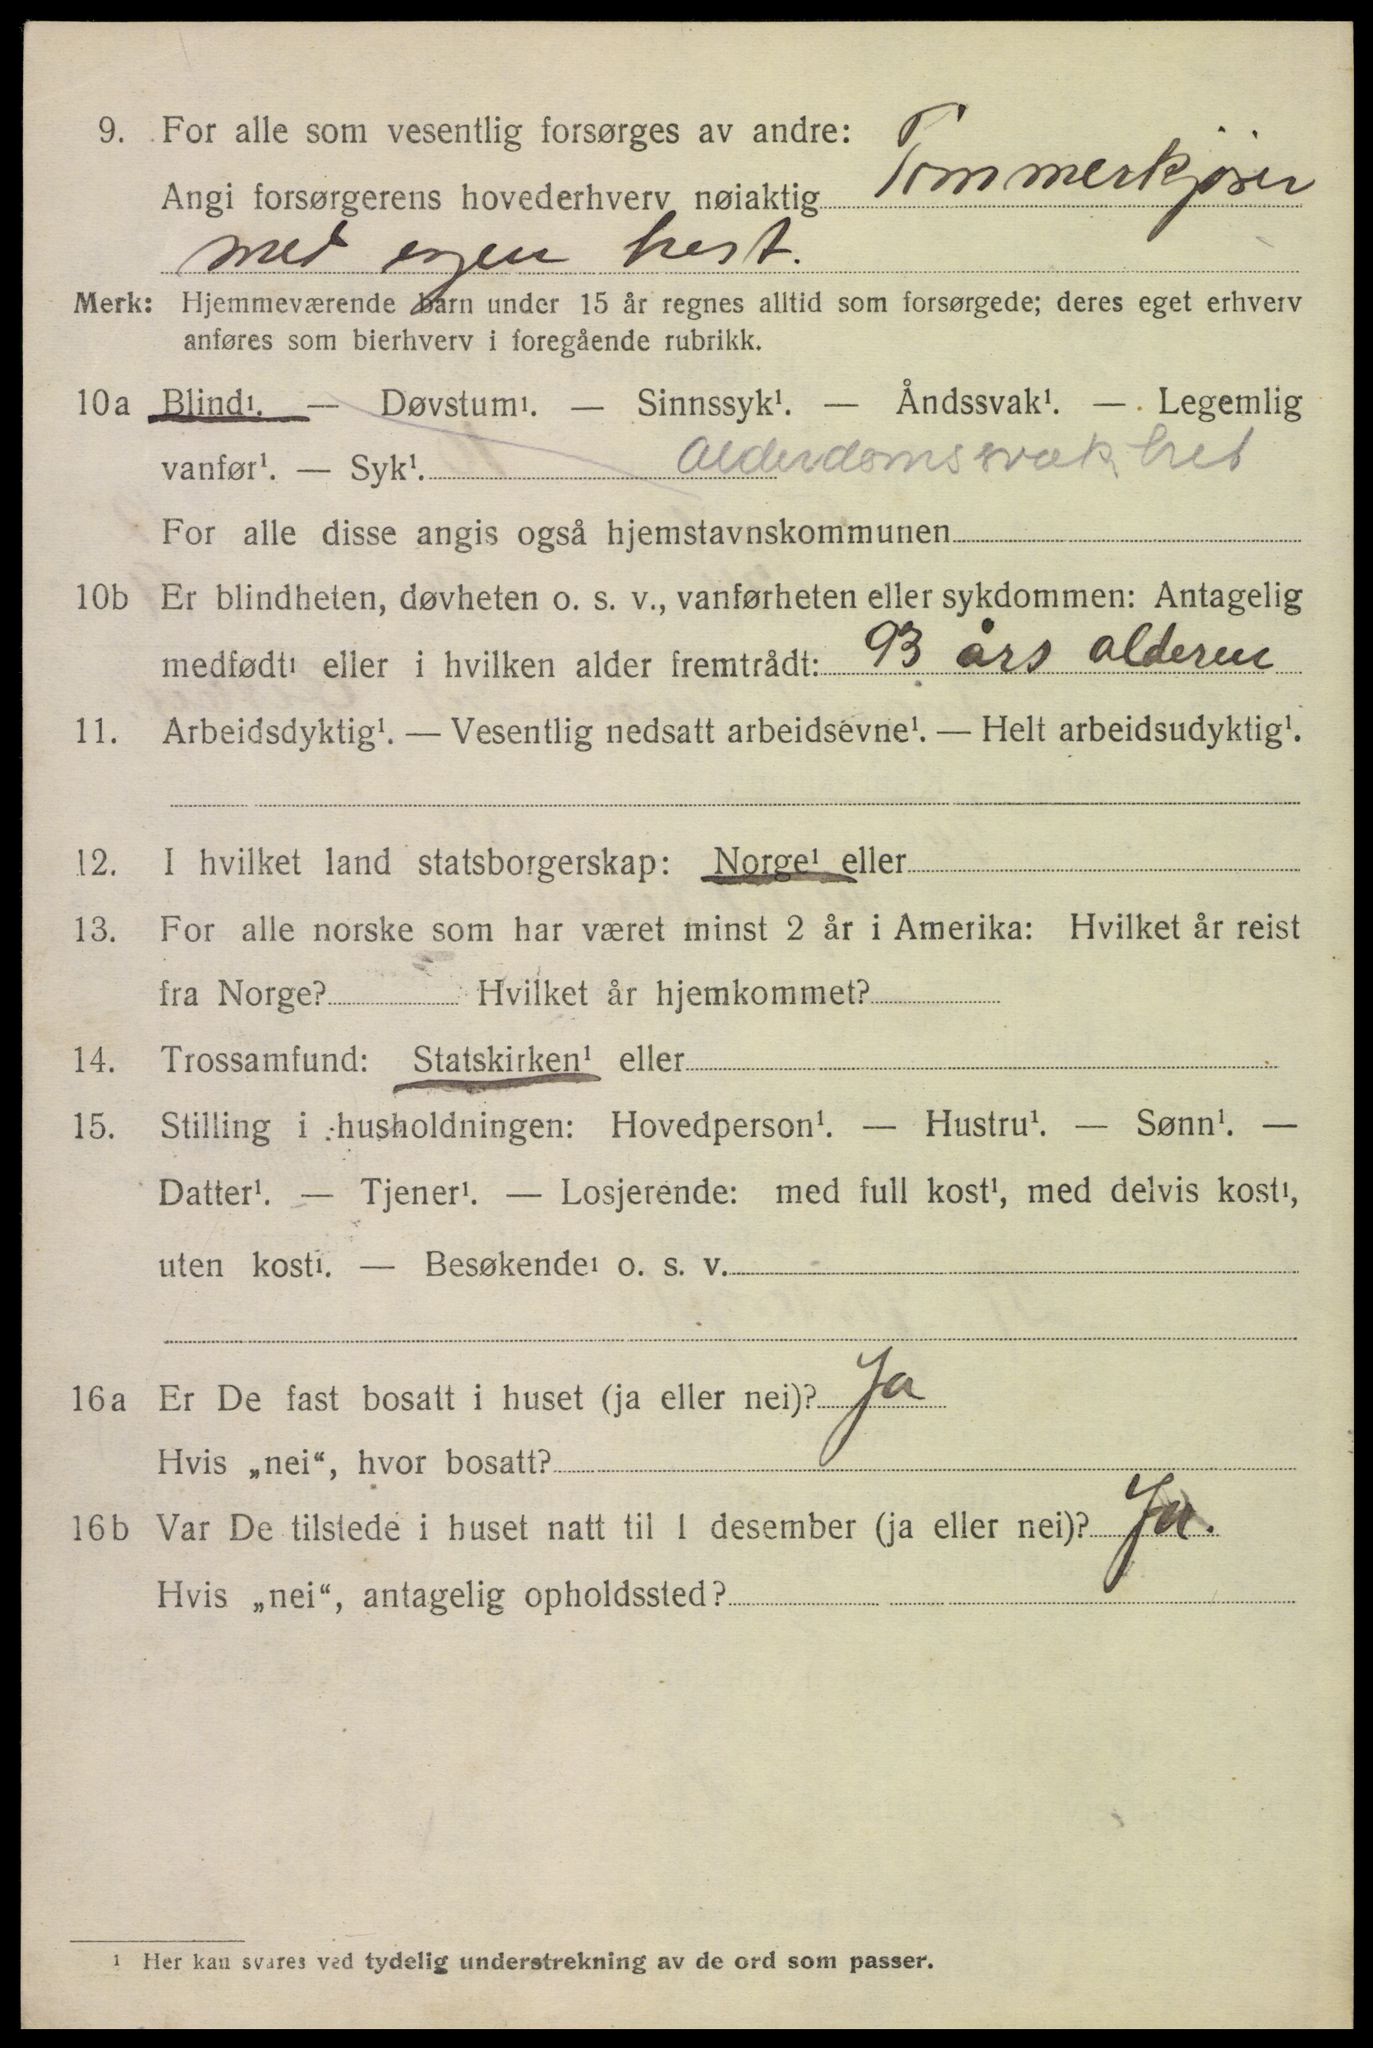 9. For alle som vesentlig forsørges av andre:
Angi forsørgerens hovederhverv nøiaktig Tømmerkjører
med egen hest.
Merk: Hjemmeværende barn under 15 år regnes alltid som forsørgede; deres eget erhverv
anføres som bierhverv i foregående rubrikk.
10a Blind¹. — Døvstum¹. — Sinnssyk¹. — Åndssvak¹. — Legemlig
vanfør¹. — Syk¹. Alderdomssvakhet
For alle disse angis også hjemstavnskommunen
10b Er blindheten, døvheten o. s. v., vanførheten eller sykdommen: Antagelig
medfødt¹ eller i hvilken alder fremtrådt: 93 års alderen
11. Arbeidsdyktig¹. — Vesentlig nedsatt arbeidsevne¹. — Helt arbeidsudyktig¹.
12. I hvilket land statsborgerskap: Norge¹ eller
13. For alle norske som har været minst 2 år i Amerika: Hvilket år reist
fra Norge? Hvilket år hjemkommet?
14. Trossamfund: Statskirken¹ eller
15. Stilling i husholdningen: Hovedperson¹. — Hustru¹. — Sønn¹. —
Datter¹. — Tjener¹. — Losjerende: med full kost¹, med delvis kost¹,
uten kost¹. — Besøkende¹ o. s. v.
16a Er De fast bosatt i huset (ja eller nei)? Ja
Hvis „nei“, hvor bosatt?
16b Var De tilstede i huset natt til 1 desember (ja eller nei)? Ja.
Hvis „nei“, antagelig opholdssted?
¹ Her kan svares ved tydelig understrekning av de ord som passer.